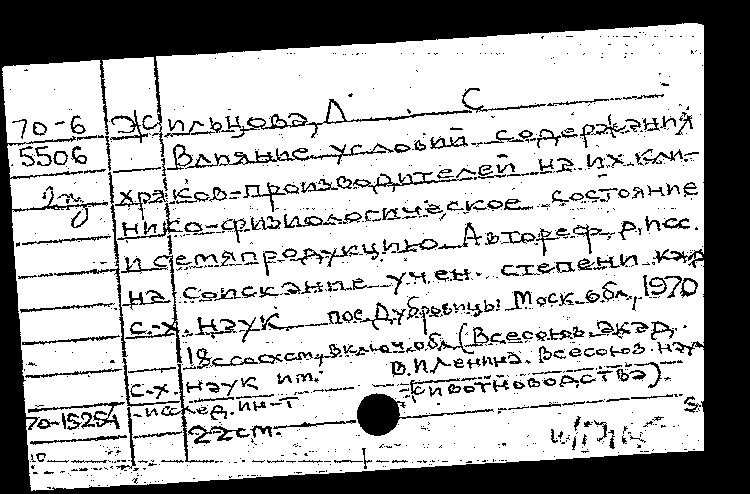 70-6 Жильцова, Л. С
5506 Влияние условий содержания
2 хряков-производителей на их кли-
нико-физиологическое состояние
и семяпродукцию. Автореф. дисс.
на соискание учен. степени
с.-х. наук пос. Дубровицы Моск. обл., 1970
18с с включ. обл. (Всесоюз. акад.
с.-х. наук им. В. И. Ленина. Всесоюз. науч
70-15254 -исслед. ин-т животноводства).
22см.